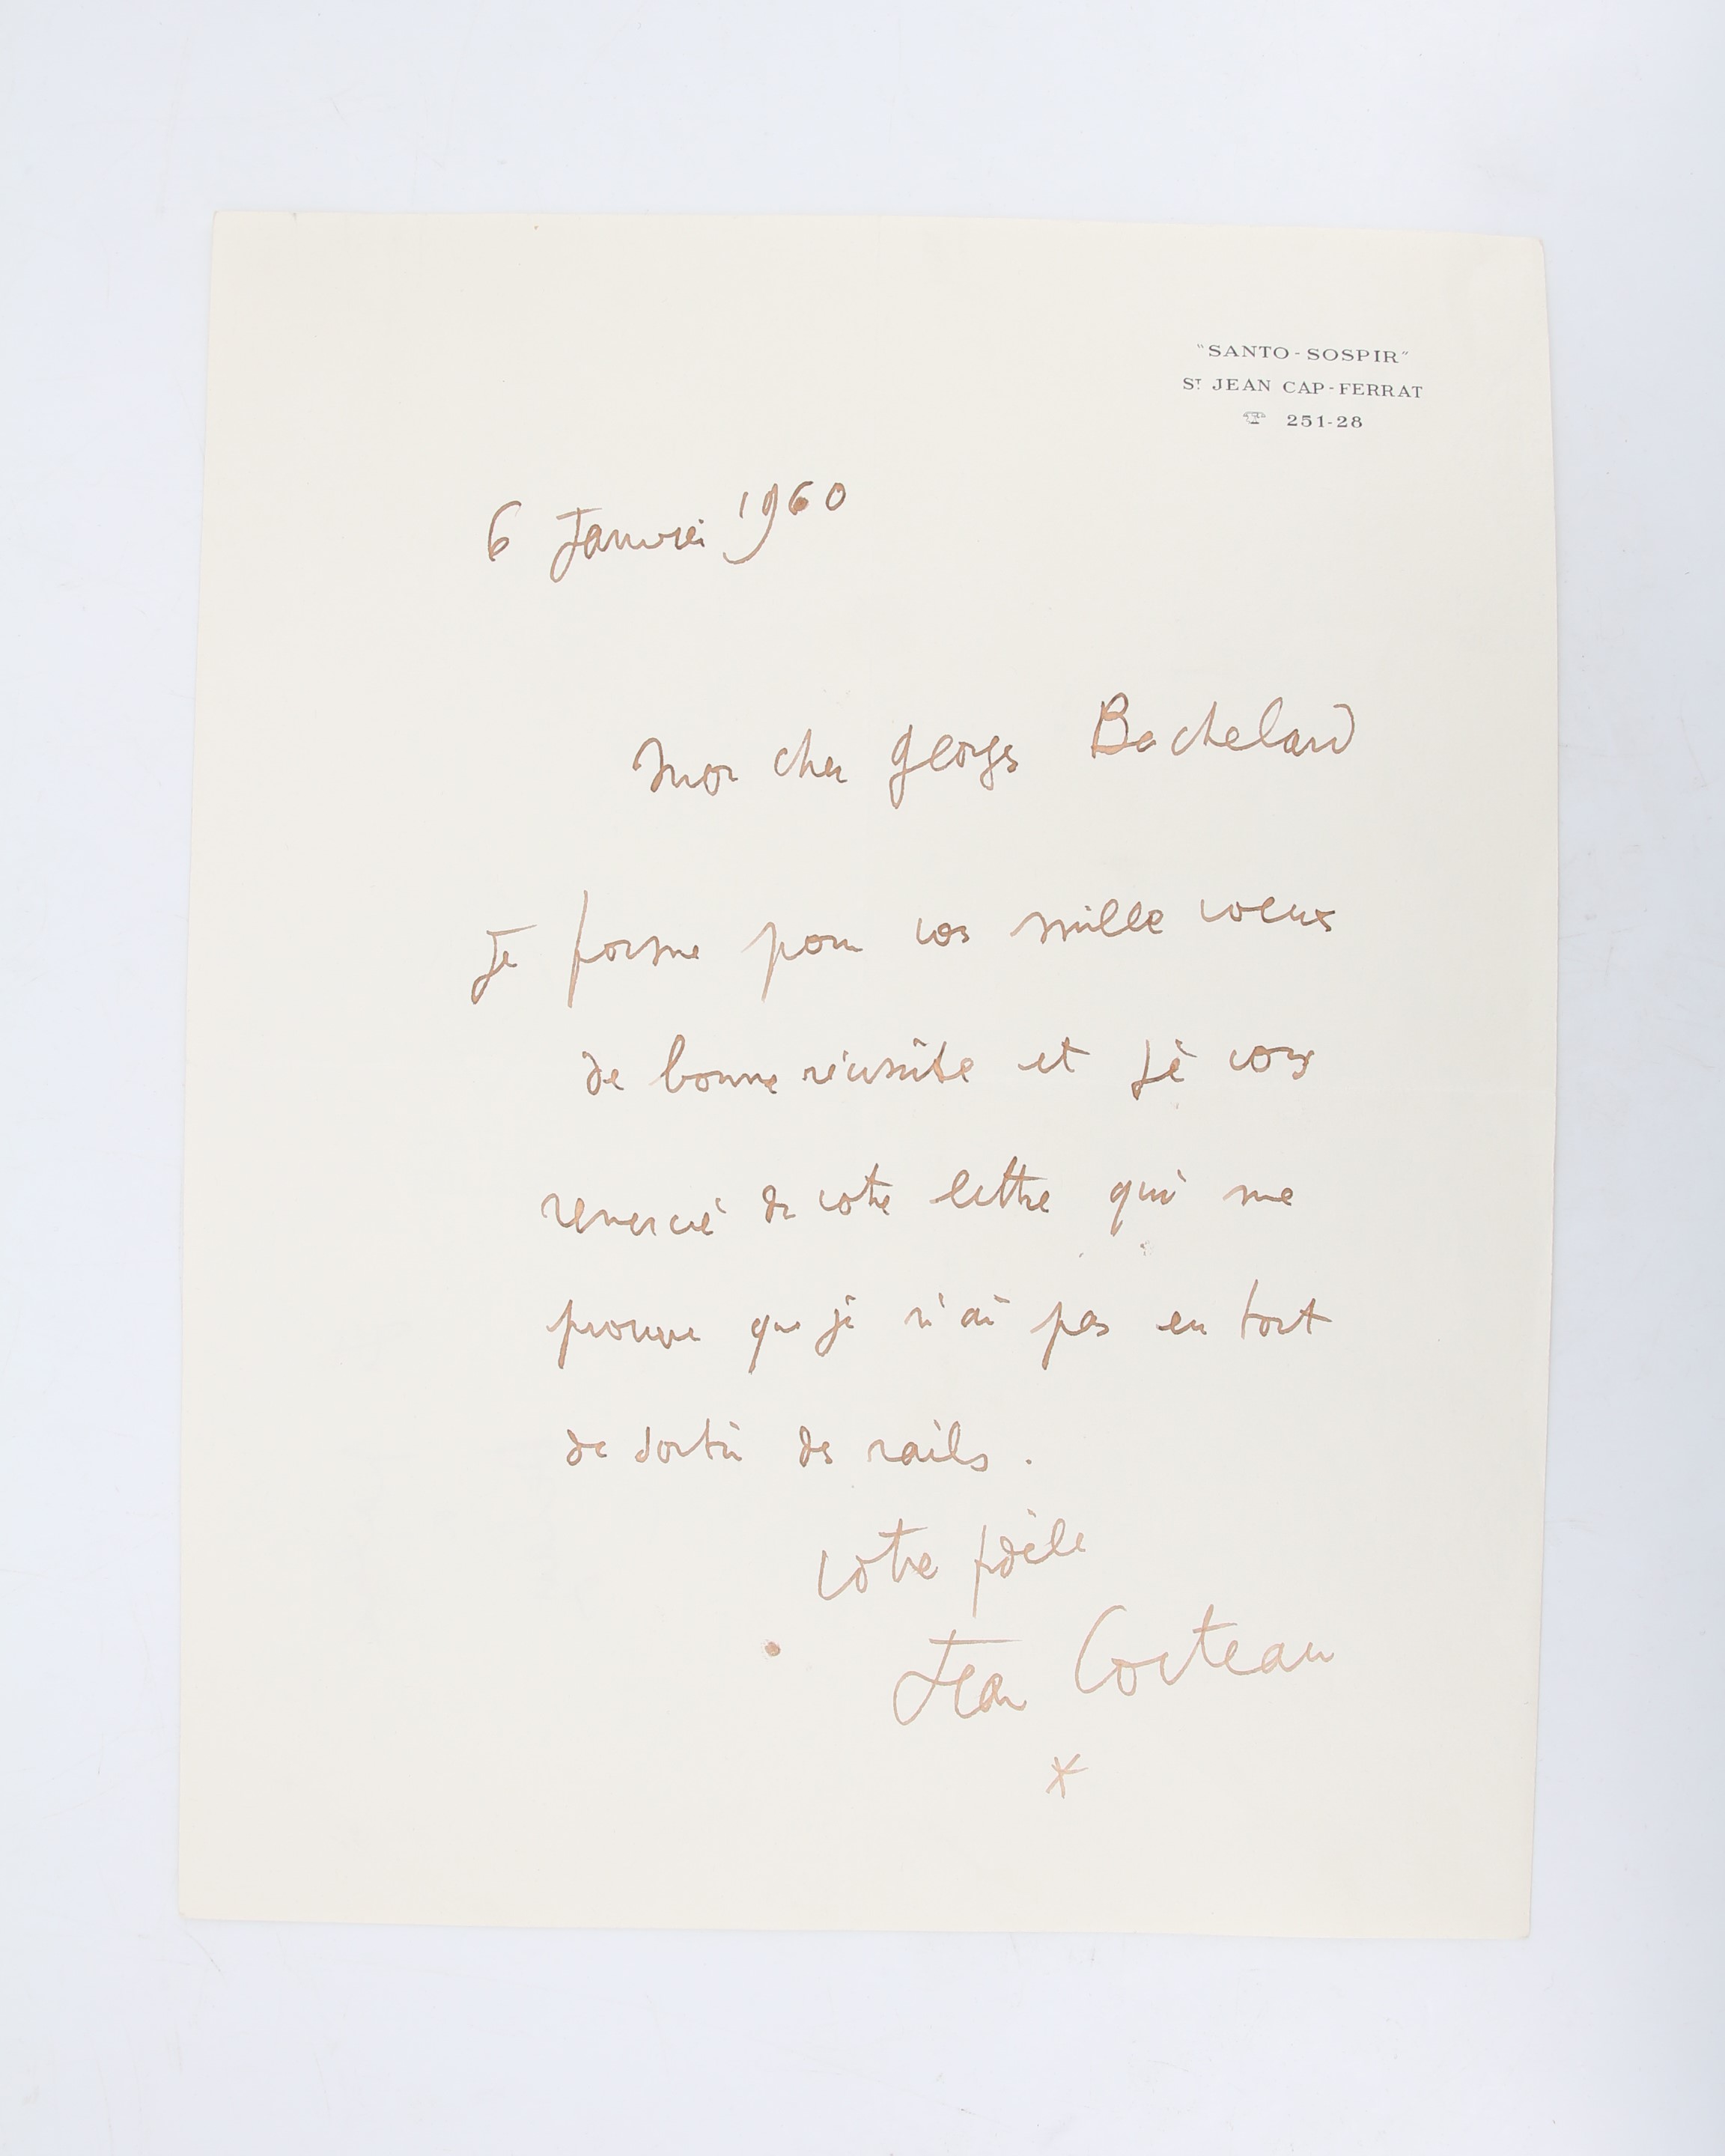 "SANTO-SOSPIR"
ST JEAN CAP-FERRAT
☎ 251-28
6 Janvier 1960
Mon cher Georges Bachelard
Je forme pour vos mille voeux
de bonne réussite et je vous
remercie de votre lettre qui me
prouve que je n'ai pas eu tort
de sortir des rails.
Votre fidèle
Jean Cocteau
*